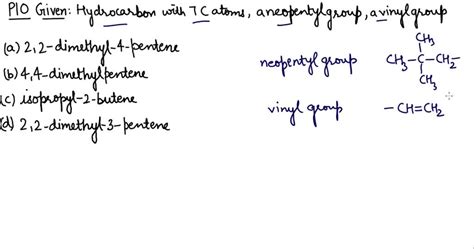 P10 Given: Hydrocarbon with 7 C atoms, a neopentyl group, a vinyl group
(a) 2,2-dimethyl-4-pentene
(b) 4,4-dimethylpentene
(c) isopropyl-2-butene
(d) 2,2-dimethyl-3-pentene
neopentyl group
CH3
CH3-C-CH2-
CH3
vinyl group
-CH=CH2